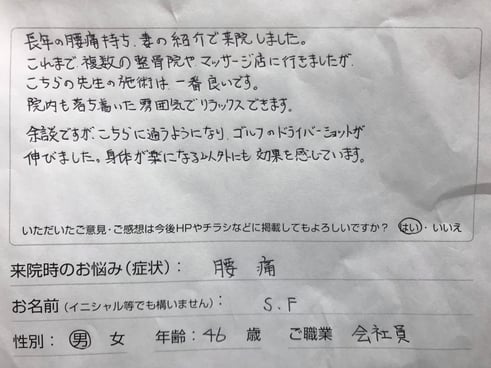 長年の腰痛持ち、妻の紹介で来院しました。
これまで、複数の整骨院やマッサージ店に行きましたが、
こちらの先生の施術は、一番良いです。
院内も落ち着いた雰囲気でリラックスできます。
余談ですが、こちらに通うようになり、ゴルフのドライバーショットが
伸びました。身体が楽になる以外にも 効果を感じています。
いただいたご意見・ご感想は今後HPやチラシなどに掲載してもよろしいですか? はい・いいえ
来院時のお悩み(症状): 腰 痛
お名前(イニシャル等でも構いません): S.F
性別: 男 女 年齢:46 歳 ご職業 会社員